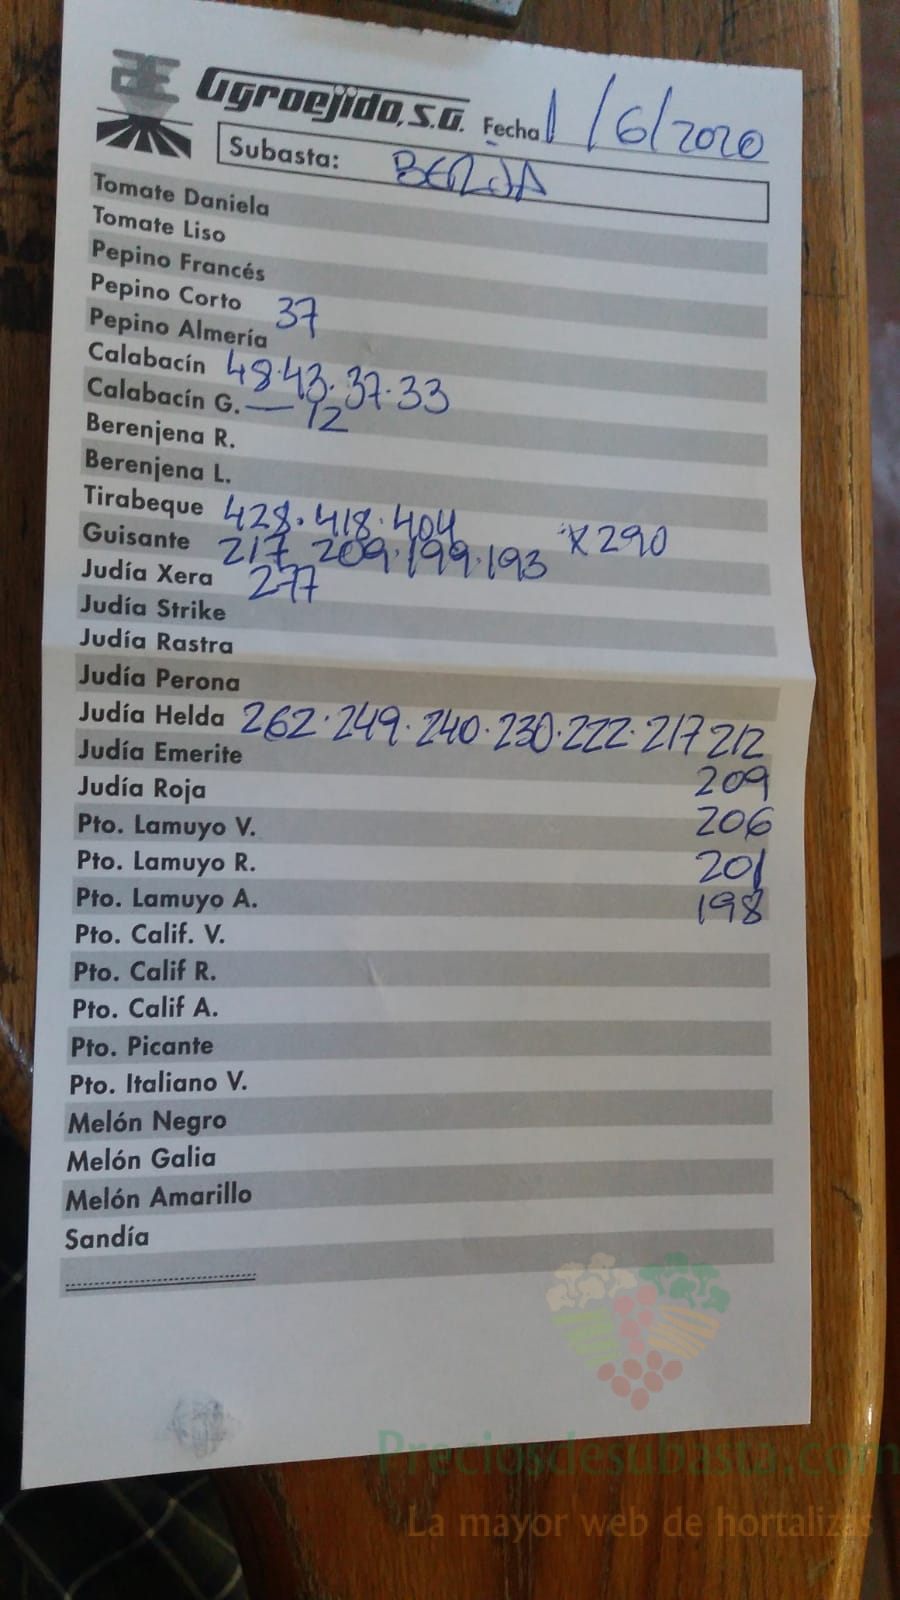 Agroejido, S.A. Fecha 1/6/2020
Subasta: BERJA
Tomate Daniela
Tomate Liso
Pepino Francés
Pepino Corto 37
Pepino Almería
Calabacín 48·43·37·33
Calabacín G. — 12
Berenjena R.
Berenjena L.
Tirabeque 428·418·404 x290
Guisante 217 209·199·193
Judía Xera 277
Judía Strike
Judía Rastra
Judía Perona
Judía Helda 262·249·240·230·222·217 212
Judía Emerite 209
Judía Roja 206
Pto. Lamuyo V.
Pto. Lamuyo R. 201
Pto. Lamuyo A. 198
Pto. Calif. V.
Pto. Calif R.
Pto. Calif A.
Pto. Picante
Pto. Italiano V.
Melón Negro
Melón Galia
Melón Amarillo
Sandía
Preciosdesubasta.com
La mayor web de hortalizas